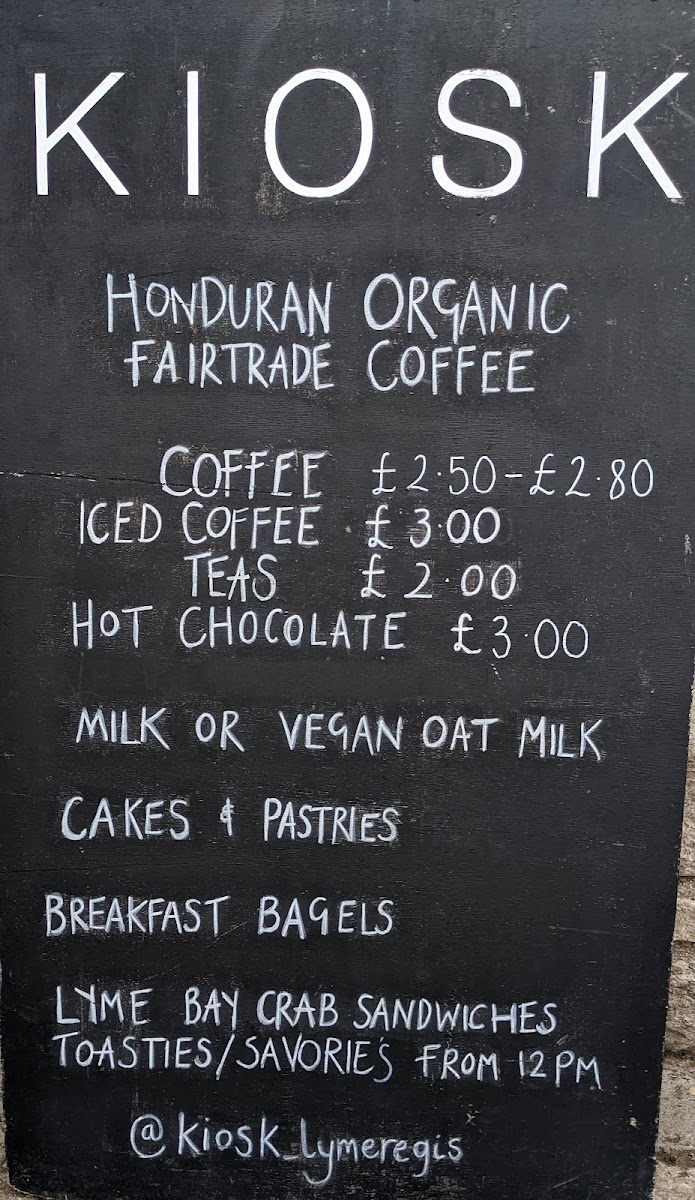 KIOSK
HONDURAN ORGANIC
FAIRTRADE COFFEE
COFFEE £2.50-£2.80
ICED COFFEE £3.00
TEAS £2.00
HOT CHOCOLATE £3.00
MILK OR VEGAN OAT MILK
CAKES & PASTRIES
BREAKFAST BAGELS
LYME BAY CRAB SANDWICHES
TOASTIES/SAVORIES FROM 12PM
@kiosk_lymeregis